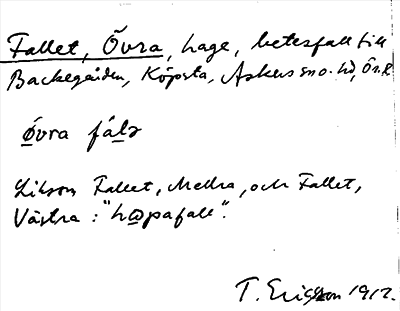 Fallet, Övra, hage, betesfall till
Backegården, Köpsta, Askers sn o. hd, Ör. l.
övra fálɜ
Liksom Fallet, Mellra, och Fallet,
Västra: "hɷpafall".
T. Ericsson 1912.